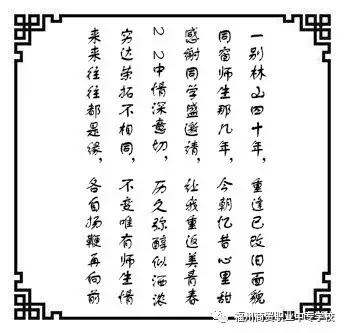 一别林山四十年，重逢已改旧面貌
同窗师生那几年，今朝忆昔心里甜
感谢同学盛邀请，让我重返美青春
22中情深意切，历久弥醇似酒浓
穷达荣拓不相同，不变唯有师生情
来来往往都是缘，各自扬鞭再向前
福州商贸职业中专学校